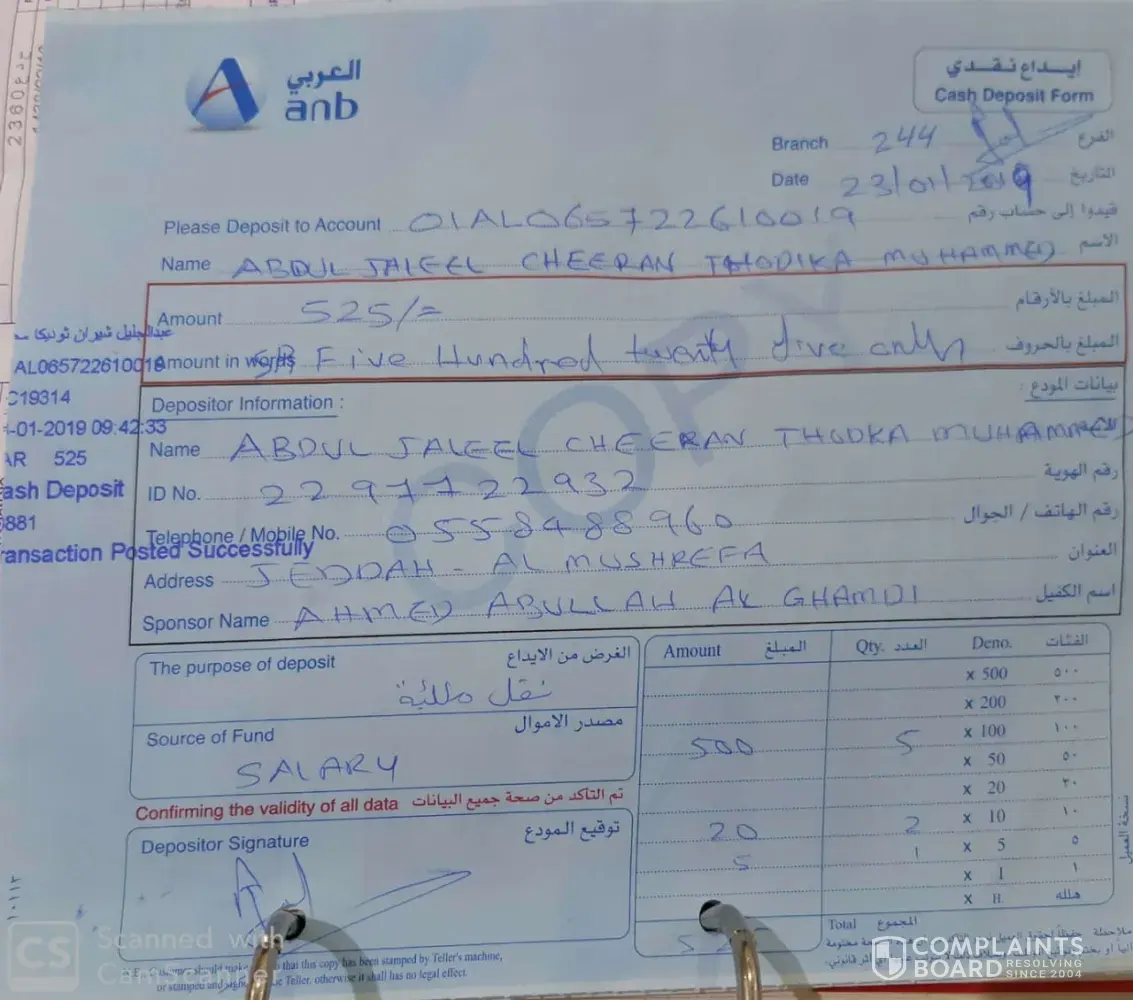 العربي
anb
ايداع نقدي
Cash Deposit Form
Branch 244 الفرع
Date 23/01/2019 التاريخ
Please Deposit to Account 01AL065722610019 قيدوا إلى حساب رقم
Name ABDUL JALEEL CHEERAN THODIKA MUHAMMED الاسم
Amount 525/= المبلغ بالأرقام
Amount in words SR Five Hundred twenty five only المبلغ بالحروف
عبدالجليل شيران ثوديكا مح
AL065722610019
C19314
-01-2019 09:42:33
AR 525
ash Deposit
9881
ransaction Posted Successfully
COPY
Depositor Information : بيانات المودع :
Name ABDUL JALEEL CHEERAN THODKA MUHAMMED الاسم
ID No. 2297722932 رقم الهوية
Telephone / Mobile No. 0558488960 رقم الهاتف / الجوال
Address JEDDAH - AL MUSHREFA العنوان
Sponsor Name AHMED ABULLAH AL GHAMDI اسم الكفيل
The purpose of deposit الغرض من الايداع
نقل
Source of Fund مصدر الاموال
SALARY
Confirming the validity of all data تم التأكد من صحة جميع البيانات
Depositor Signature توقيع المودع
Amount المبلغ Qty. العدد Deno. الفئات
x 500 ٥٠٠
x 200 ٢٠٠
500 5 x 100 ١٠٠
x 50 ٥٠
x 20 ٢٠
20 2 x 10 ١٠
5 1 x 5 ٥
x 1 ١
x H. هللة
Total المجموع
نسخة العميل
that this copy has been stamped by Teller's machine,
or stamped and Teller, otherwise it shall has no legal effect.
ملاحظة
CS
Scanned with
CamScanner
COMPLAINTS
BOARD RESOLVING
SINCE 2004
2360
١٠١١٢